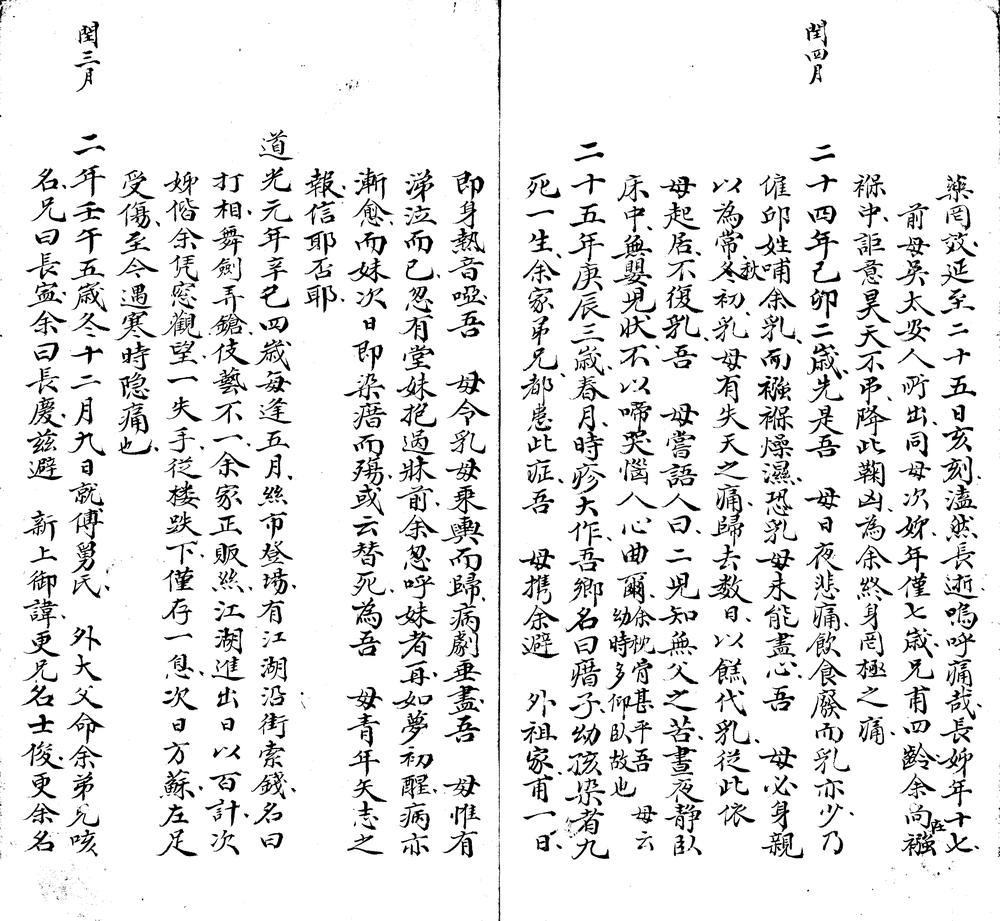 閏四月
藥罔效延至二十五日亥刻溘然長逝嗚呼痛哉長姊年十七
前母吳太安人所出同母次姊年僅七歲兄甫四齡余尚在襁
褓中詎意昊天不弔降此鞠凶為余終身罔極之痛
二十四年己卯二歲先是吾　母日夜悲痛飲食廢而乳亦少乃
僱邱姓哺余乳而襁褓燥濕恐乳母未能盡心吾　母必身親
以為常秋冬初乳母有失天之痛歸去数日以餻代乳從此依
母起居不復乳吾　母嘗語人曰二児知無父之苦晝夜静臥
床中無嬰児狀不以啼哭惱人心曲爾余枕骨甚平吾　母云幼時多仰臥故也
二十五年庚辰三歲春月時疹大作吾鄉名曰㾺子幼孩染者九
死一生余家弟兄都患此症吾　母携余避　外祖家甫一日
即身熱音啞吾　母令乳母乘輿而歸病劇垂盡吾　母惟有
涕泣而已忽有堂妹抱過牀前余忽呼妹者再如夢初醒病亦
漸愈而妹次日即染㾺而殤或云替死為吾　母青年矢志之
報信耶否耶
道光元年辛巳四歲每逢五月絲市登場有江湖沿街索錢名曰
打相舞劍弄鎗伎藝不一余家正販絲江湖進出日以百計次
姊偕余凭窓觀望一失手從楼跌下僅存一息次日方蘇左足
受傷至今遇寒時隠痛也
閏三月
二年壬午五歲冬十二月九日就傅舅氏　外大父命余弟兄咳
名兄曰長寍余曰長慶兹避　新上御諱更兄名士俊更余名